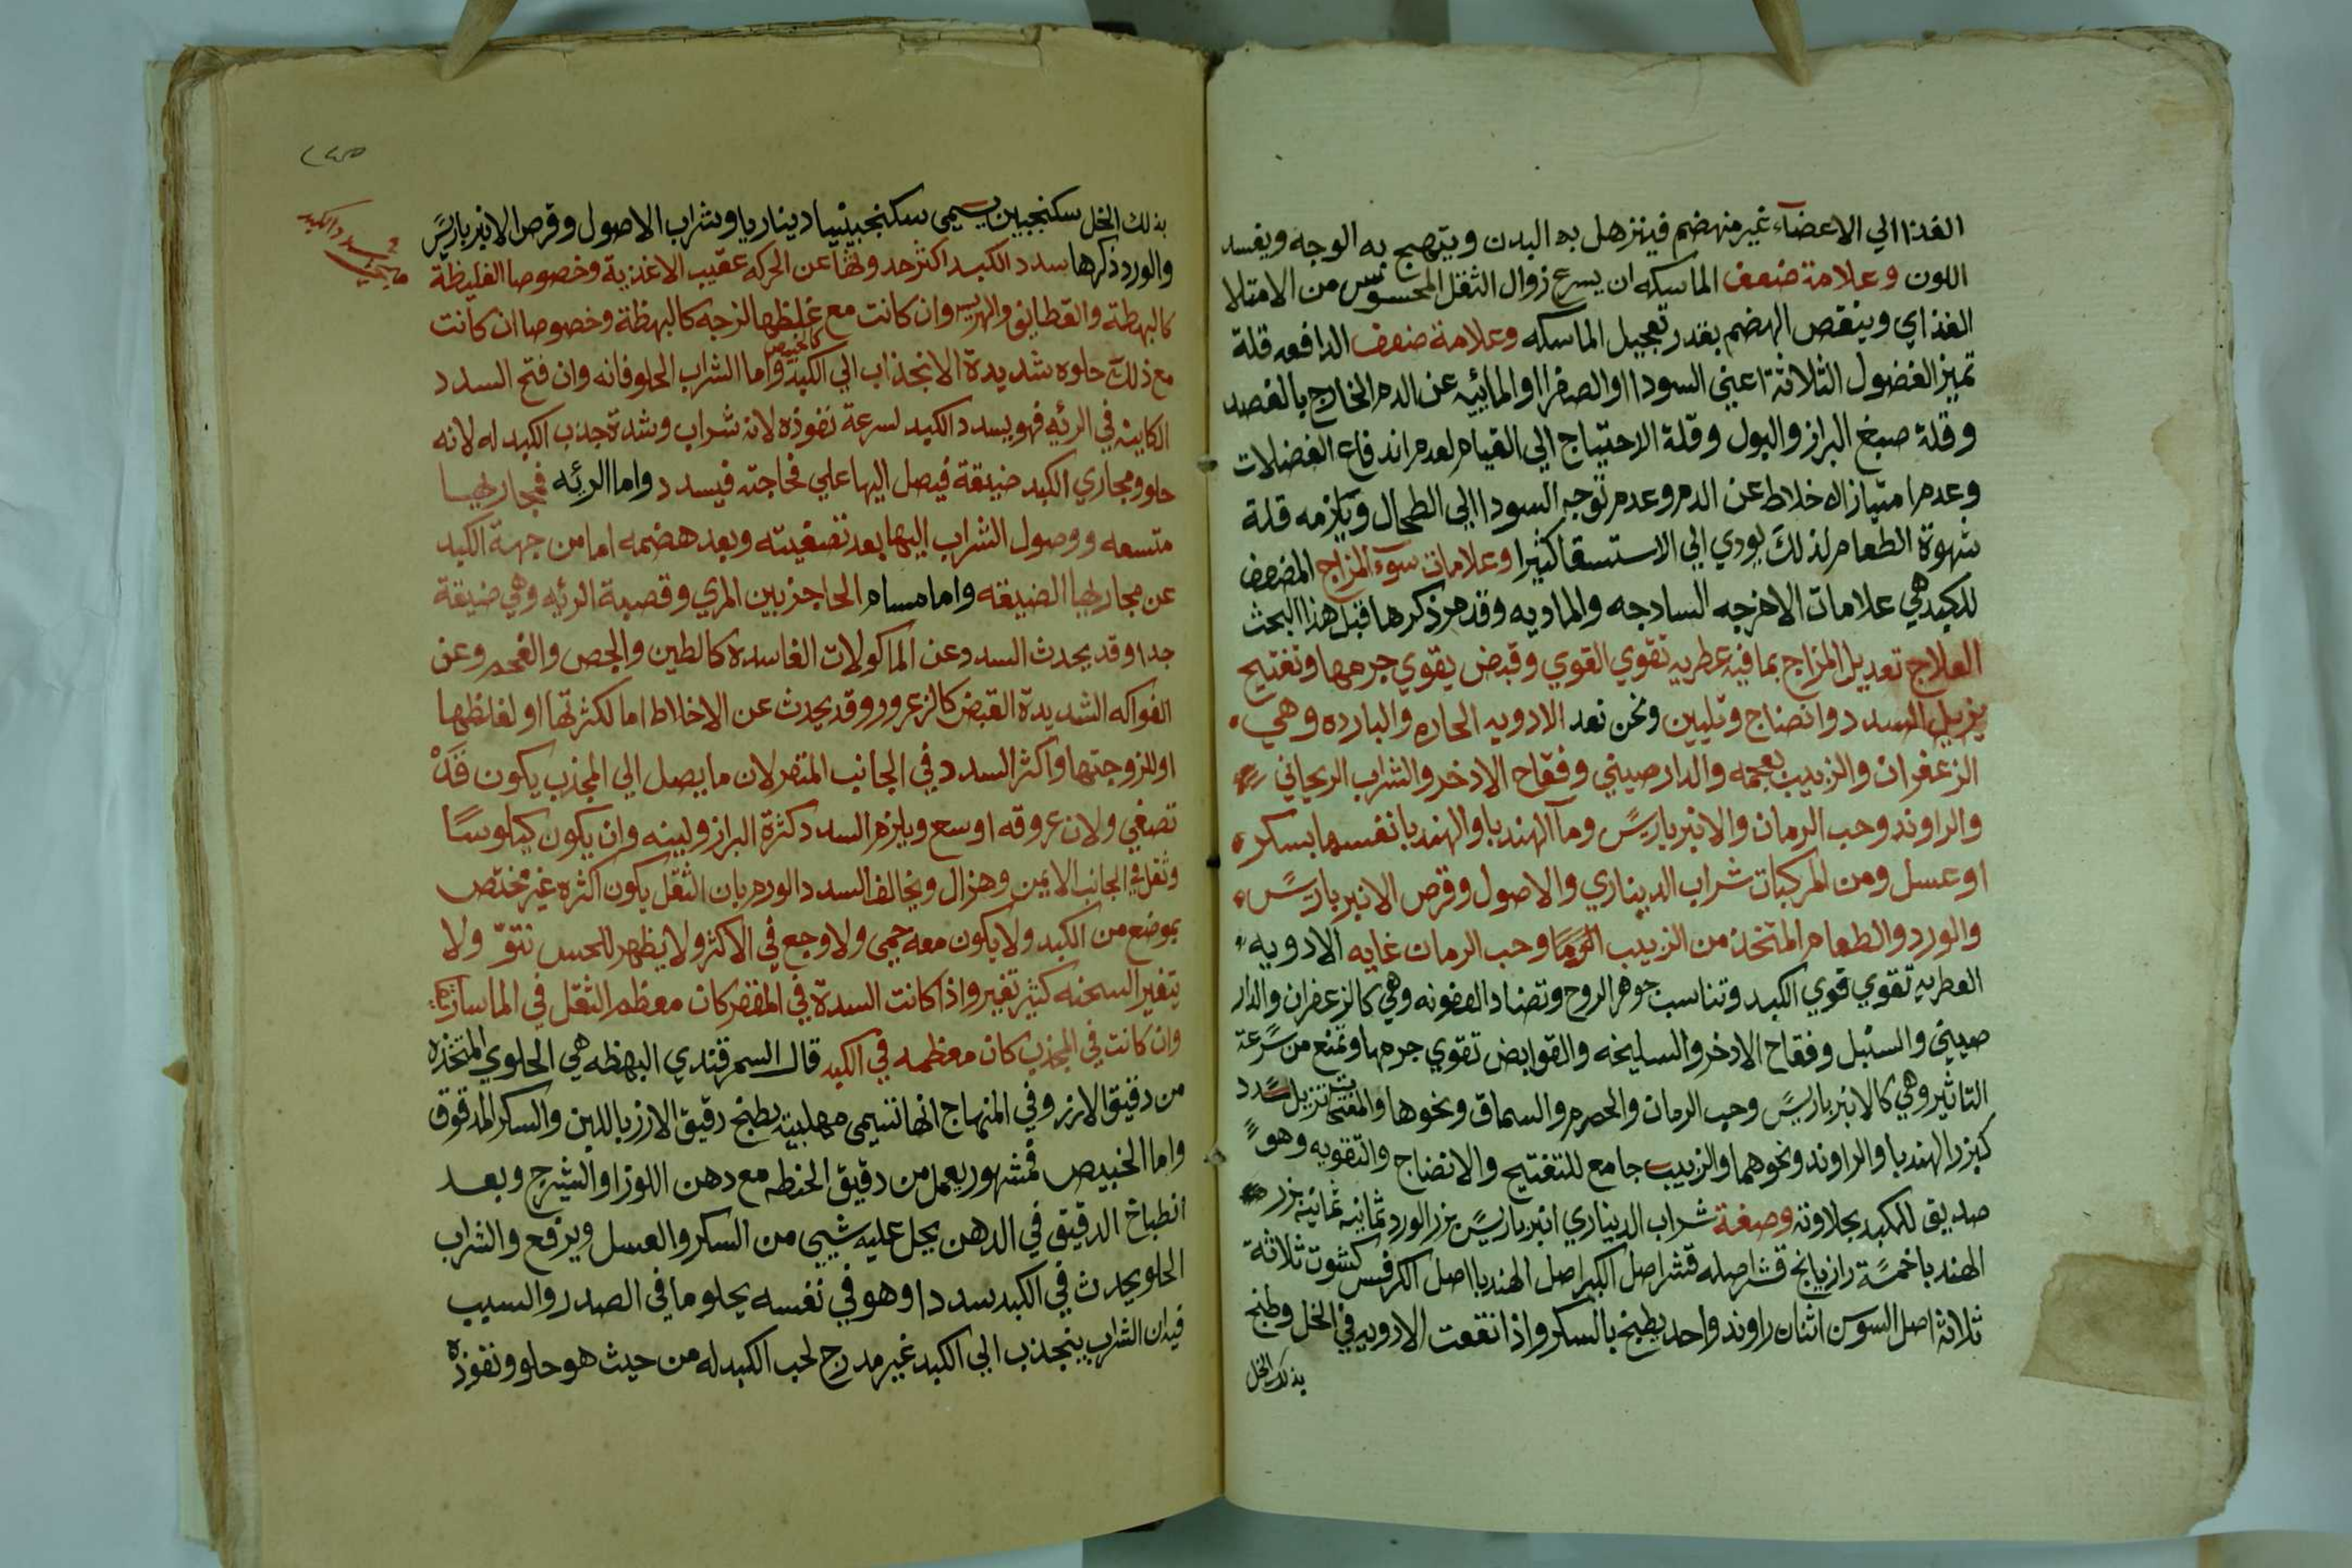 الغذا الي الاعضآء غير منهضم فيتزهل به البدن ويتهبج به الوجه ويفسد
اللون وعلامة ضعف الماسكه ان يسرع زوال الثقل المحسوس من الامتلا
الغذاي وينقص الهضم بقدر تعجيل الماسكه وعلامة ضعف الدافعه قلة
تميز الفضول الثلاثة اعني السودا والصفرا والمائيه عن الدم الخارج بالفصد
وقلة صبغ البراز والبول وقلة الاحتياج الي القيام لعدم اندفاع الفضلات
وعدم امتياز الاخلاط عن الدم وعدم توجه السودا الي الطحال ويلزمه قلة
شهوة الطعام لذلك يودي الي الاستسقا كثيرا وعلامات سوء المزاج المضعف
للكبد هي علامات الامزجه السادجه والماديه وقد مر ذكرها قبل هذا البحث
العلاج تعديل المزاج بما فيه عطريه تقوي القوي وقبض يقوي جرمها وتفتيح
يزيل السدد وانضاج وتليين ونحن نعد الادويه الحاره والبارده وهي
الزعفران والزبيب بعجمه والدارصيني وفقاح الادخر والشراب الريحاني
والراوند وحب الرمان والانبرباريس ومآ الهندبا والهندبا نفسها بسكر
او عسل ومن المركبات شراب الديناري والاصول وقرص الانبرباريس
والورد والطعام المتخذ من الزبيب وحب الرمان غايه الادويه
العطريه تقوي قوي الكبد وتناسب جوهر الروح وتضاد العفونه وهي كالزعفران والدار
صيني والسنبل وفقاح الادخر والسليخه والقوابض تقوي جرمها وتمنع من سرعة
التاثير وهي كالانبرباريس وحب الرمان والحصرم والسماق ونحوها والمفتحات تزيل سدد
كبزر الهندبا والراوند ونحوهما والزبيب جامع للتفتيح والانضاج والتقويه وهو
صديق للكبد بحلاوته وصفة شراب الديناري انبرباريس بزر الورد ثمانيه ثمانيه بزر
الهندبا خمسة رازيانج قشر اصله قشر اصل الكبر اصل الهندبا اصل الكرفس كشوت ثلاثة
ثلاثة اصل السوس اثنان راوند واحد يطبخ بالسكر واذا نقعت الادويه في الخل وطبخ
بذلك الخل
وسدد الكبد
بذلك الخل سكنجبين يسمي سكنجبينيا ديناريا وشراب الاصول وقرص الانبرباريس
والورد ذكرها سدد الكبد اكثر حدوثها عن الحركه عقيب الاغذية وخصوصا الغليظة
كالبهطة والقطايف والهريس وان كانت مع غلظها لزجه كالبهظة وخصوصا ان كانت
مع ذلك حلوه شديدة الانجذاب الي الكبد كالخبيص واما الشراب الحلو فانه وان فتح السدد
الكاينه في الرئه فهو يسدد الكبد لسرعة نفوذه لانه شراب وشدة جذب الكبد له لانه
حلو ومجاري الكبد ضيقة فيصل اليها علي فجاجته فيسدد واما الرئه فمجاريها
متسعه ووصول الشراب اليها بعد تصفيته وبعد هضمه اما من جهة الكبد
عن مجاريها الضيقه واما مسام الحاجز بين المري وقصبة الرئه وهي ضيقة
جدا وقد يحدث السدد عن الماكولات الفاسده كالطين والجص والفحم وعن
الفواكه الشديدة القبض كالزعرور وقد يحدث عن الاخلاط اما لكثرتها او لغلظها
او للزوجتها واكثر السدد في الجانب المقعر لان ما يصل الي المحدب يكون قد
تصفي ولان عروقه اوسع ويلزم السدد كثرة البراز ولينه وان يكون كيلوسا
وثقل في الجانب الايمن وهزال ويخالف السدد الورم بان الثقل يكون اكثره غير مختص
بموضع من الكبد ولا يكون معه حمي ولا وجع في الاكثر ولا يظهر للحس نتوّ ولا
يتغير السحنه كثير تغير واذا كانت السدة في المقعر كان معظم الثقل في الماساريقا
وان كانت في المحدب كان معظمه في الكبد قال السمرقندي البهظه هي الحلوي المتخذه
من دقيق الارز وفي المنهاج انها تسمي مهلبيه يطبخ دقيق الارز باللبن والسكر المدقوق
واما الخبيص فمشهور يعمل من دقيق الحنطه مع دهن اللوز او الشيرج وبعد
انطباخ الدقيق في الدهن يجل عليه شيي من السكر والعسل ويرفع والشراب
الحلو يحدث في الكبد سددا وهو في نفسه يجلو ما في الصدر والسبب
فيه ان الشراب ينجذب الي الكبد غير مدرج لحب الكبد له من حيث هو حلو ونفوذه